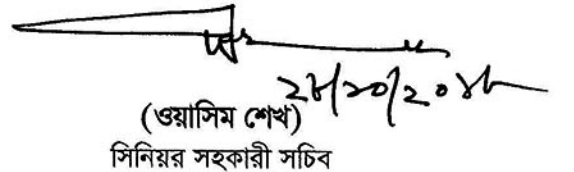 ২৮/১০/২০১৮
(ওয়াসিম শেখ)
সিনিয়র সহকারী সচিব